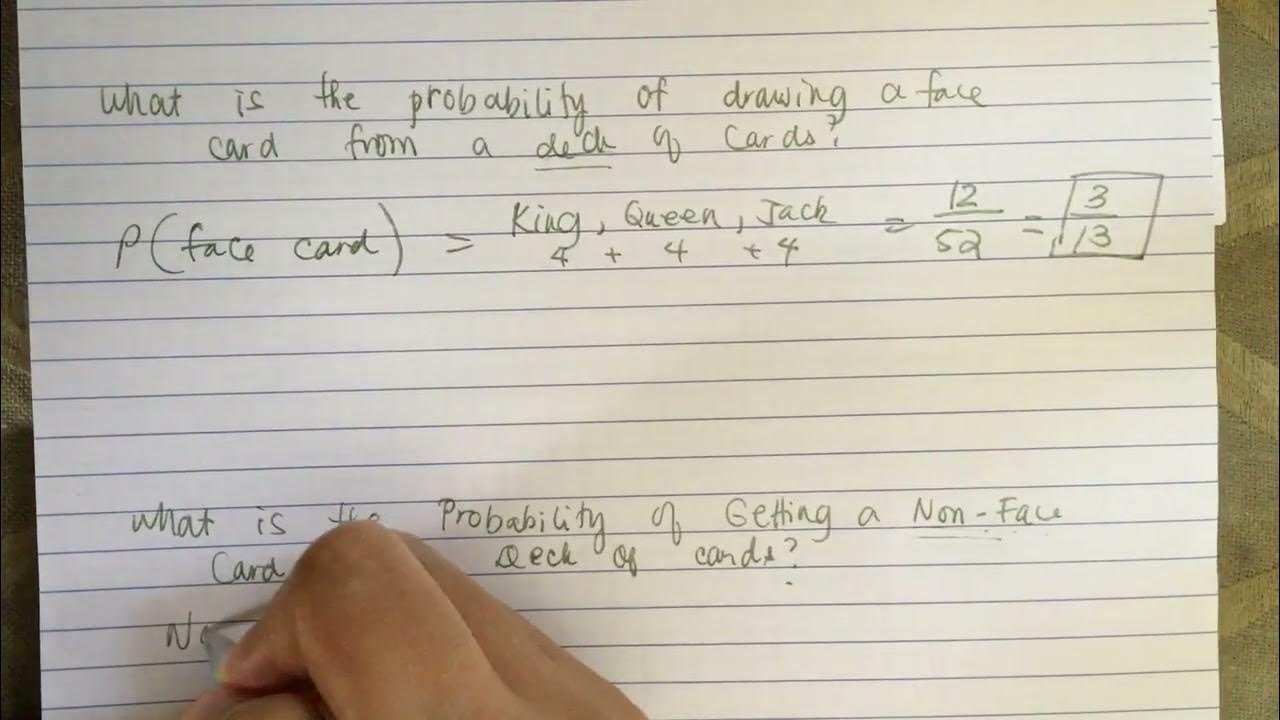 What is the probability of drawing a face
card from a deck of cards?
P(face card) = King, Queen, Jack = 12/52 = 3/13
4 + 4 + 4
What is the Probability of Getting a Non-Face
Card Deck of cards?